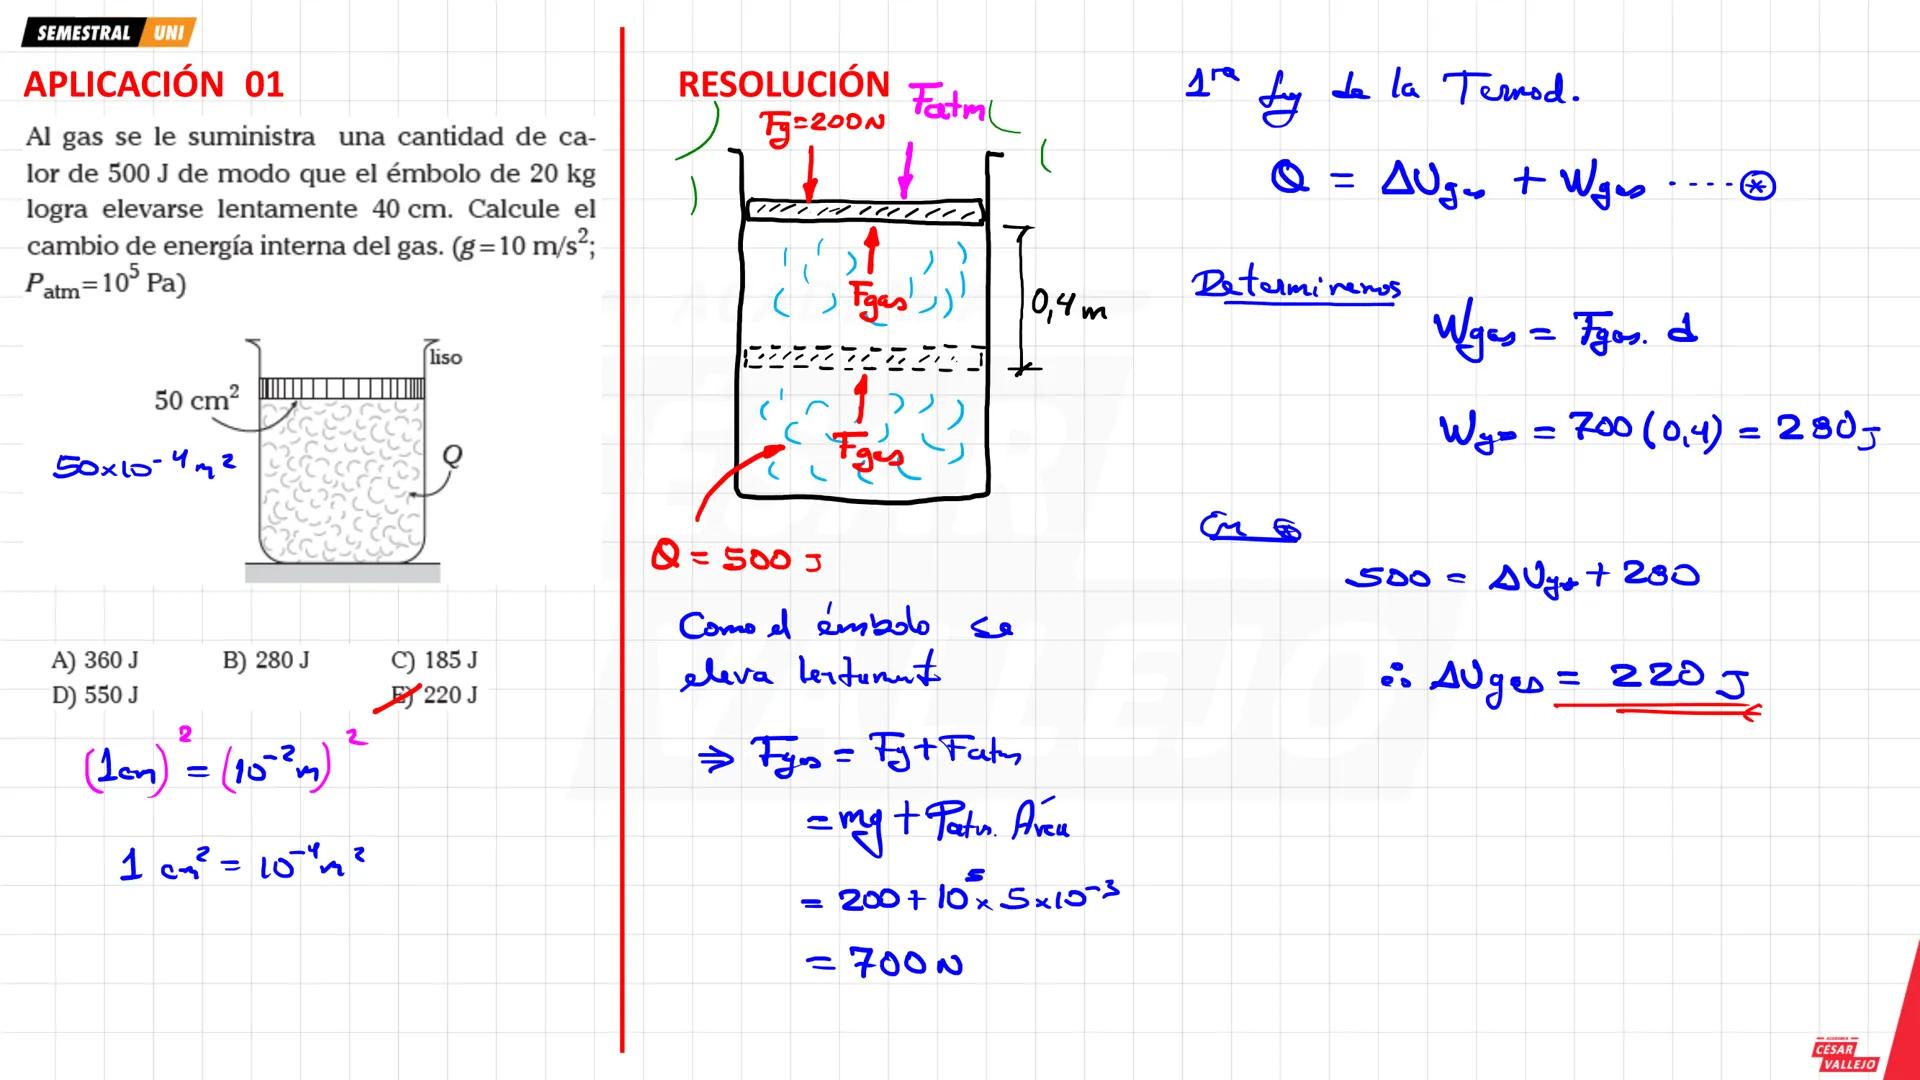 SEMESTRAL UNI
APLICACIÓN 01
Al gas se le suministra una cantidad de ca-
lor de 500 J de modo que el émbolo de 20 kg
logra elevarse lentamente 40 cm. Calcule el
cambio de energía interna del gas. (g=10 m/s²;
Patm=10⁵ Pa)
liso
50 cm²
50×10⁻⁴m²
Q
A) 360 J B) 280 J C) 185 J
D) 550 J E) 220 J
(1cm)² = (10⁻²m)²
1 cm² = 10⁻⁴m²
RESOLUCIÓN
Fg=200N
Fatm
Fgas
0,4 m
Fgas
Q = 500 J
Como el émbolo se
eleva lentament
⇒ Fgas = Fg + Fatm
= mg + Patm. Área
= 200 + 10⁵ × 5×10⁻³
= 700 N
1ra Ley de la Termod.
Q = ΔUgas + Wgas ....⊛
Determinemos
Wgas = Fgas. d
Wgas = 700 (0,4) = 280 J
En ⊛
500 = ΔUgas + 280
∴ ΔUgas = 220 J
ACADEMIA
CÉSAR
VALLEJO